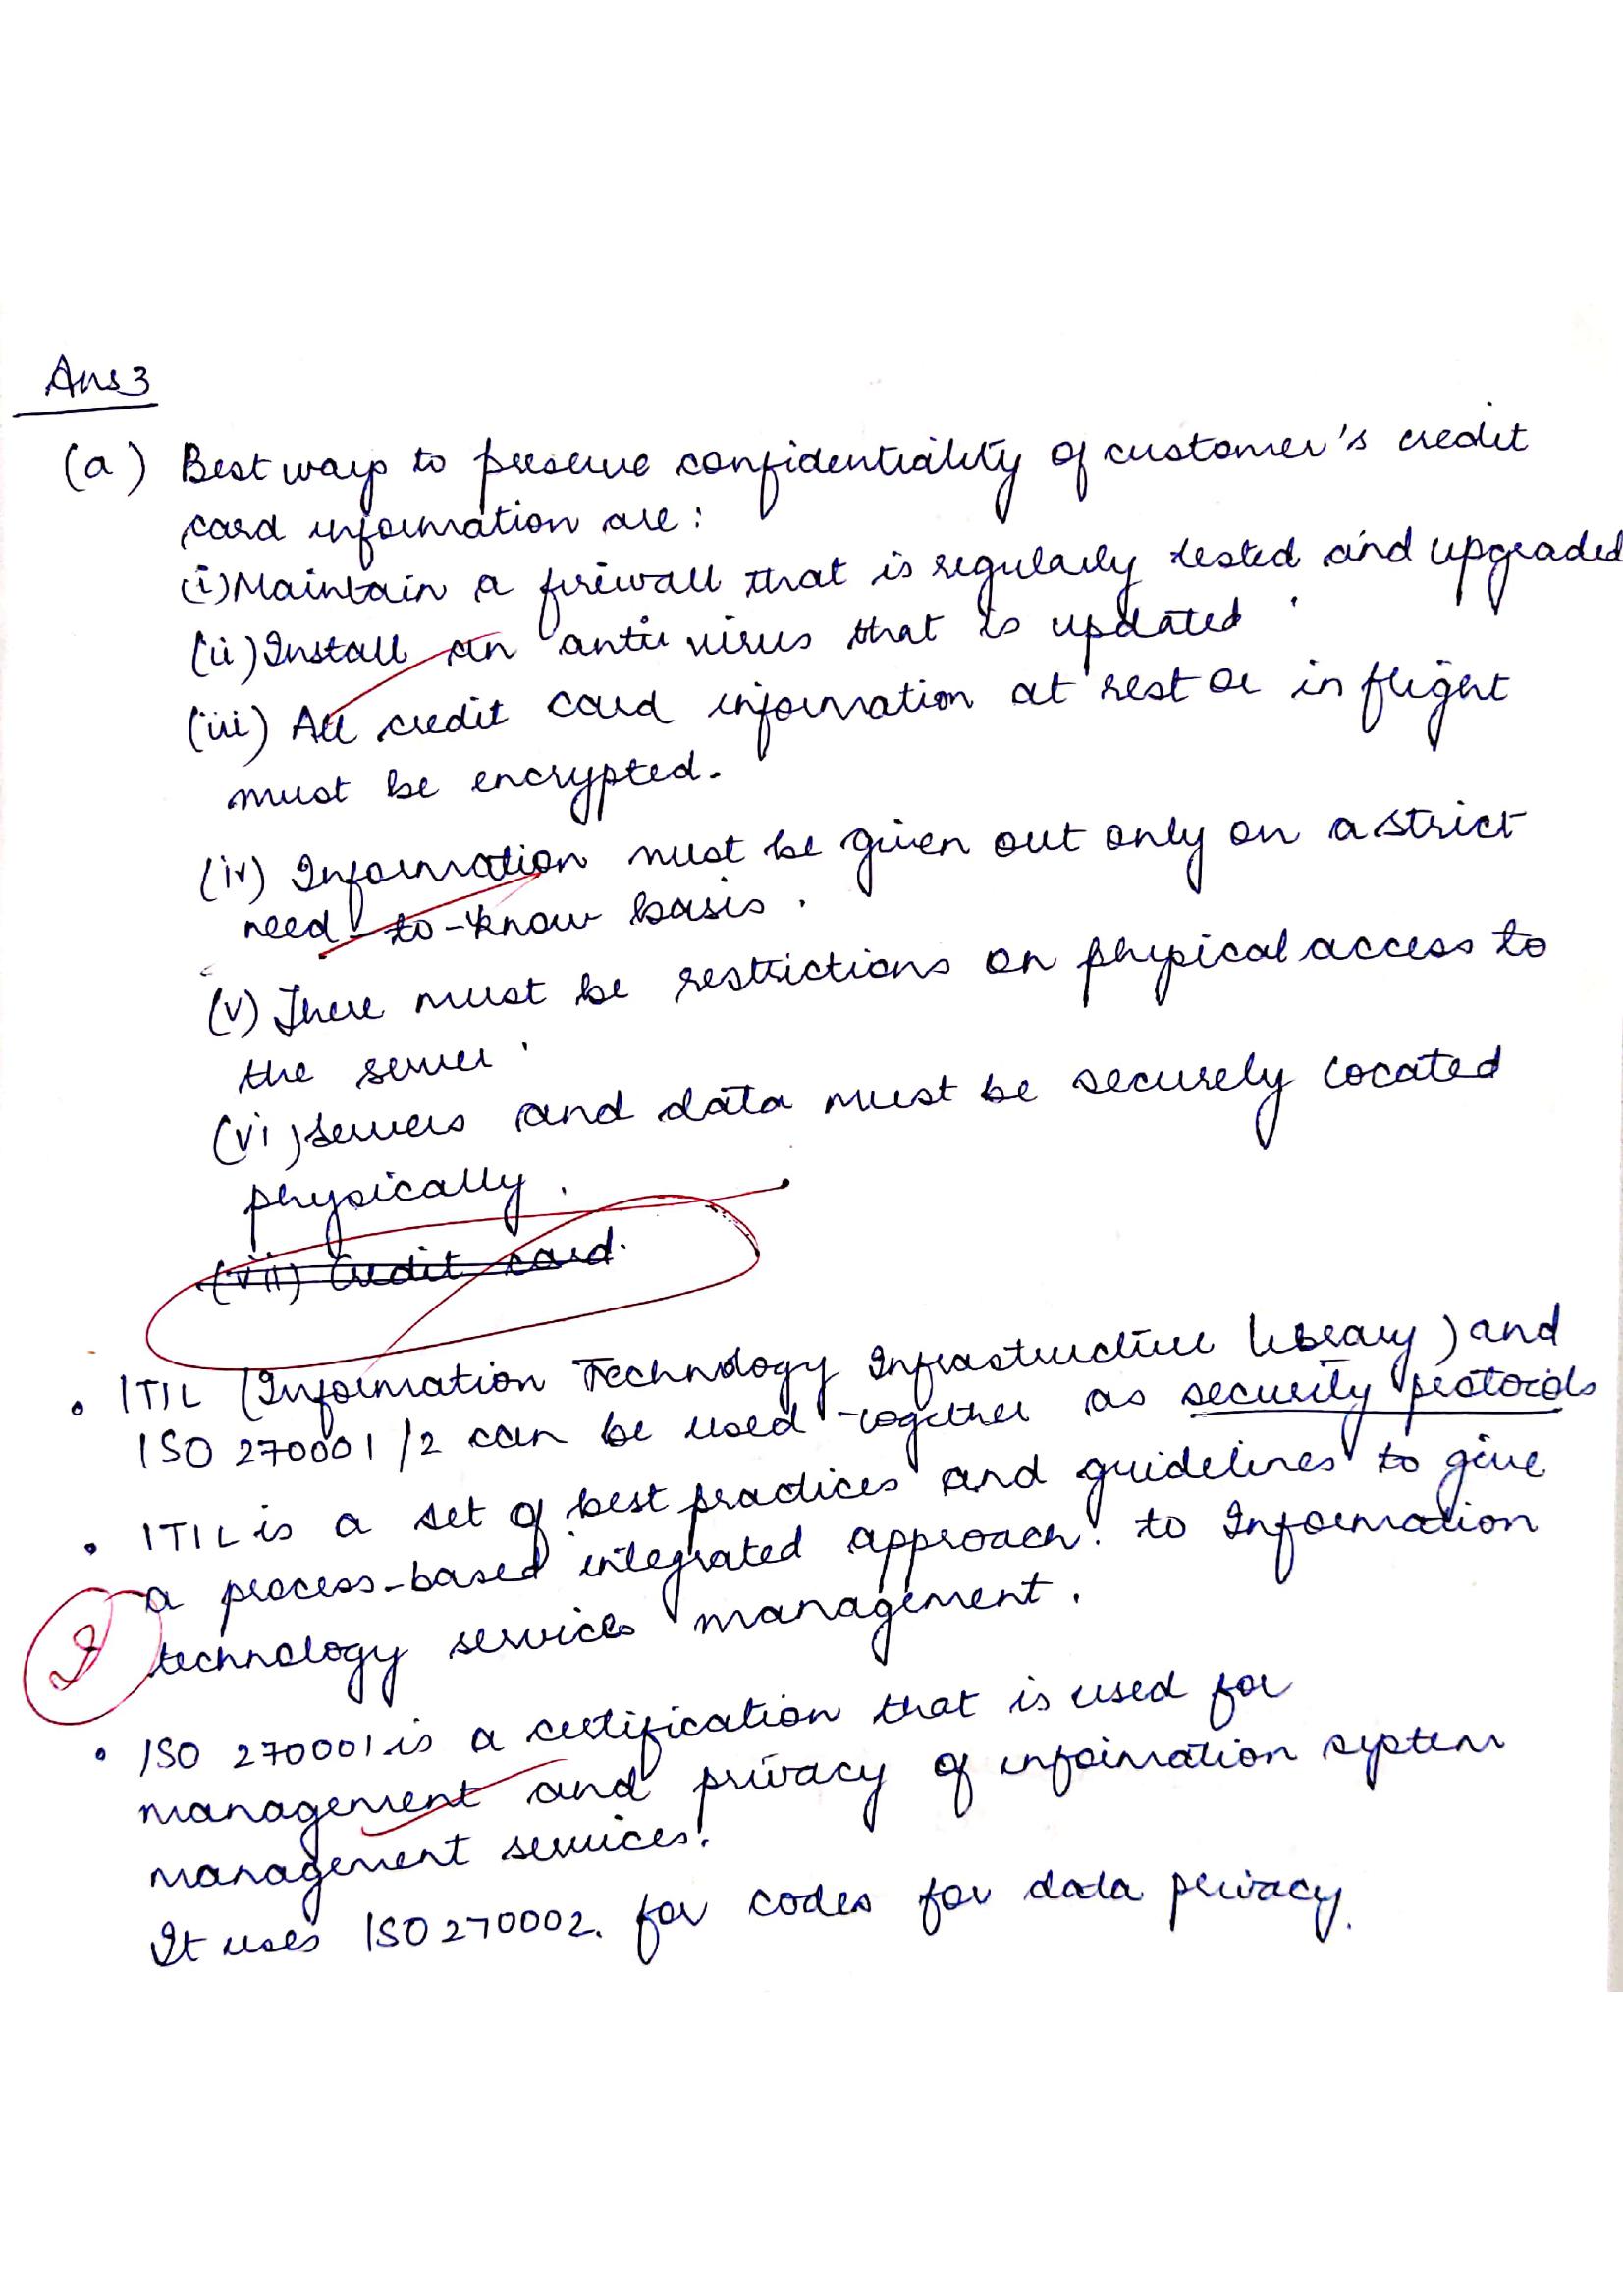 Ans 3
(a) Best ways to preserve confidentiality of customer's credit
card information are:
(i) Maintain a firewall that is regularly tested and upgraded.
(ii) Install an anti virus that is updated
(iii) All credit card information at rest or in flight
must be encrypted.
(iv) Information must be given out only on a strict
need-to-know basis.
(v) There must be restrictions on physical access to
the server.
(vi) Servers and data must be securely located
physically.
(vii) Credit card.
• ITIL (Information Technology Infrastructure Library) and
ISO 270001/2 can be used together as security protocols
• ITIL is a set of best practices and guidelines to give
a process-based integrated approach. to Information
technology services management.
• ISO 270001 is a certification that is used for
management and privacy of information system
management services.
It uses ISO 270002. for codes for data privacy.